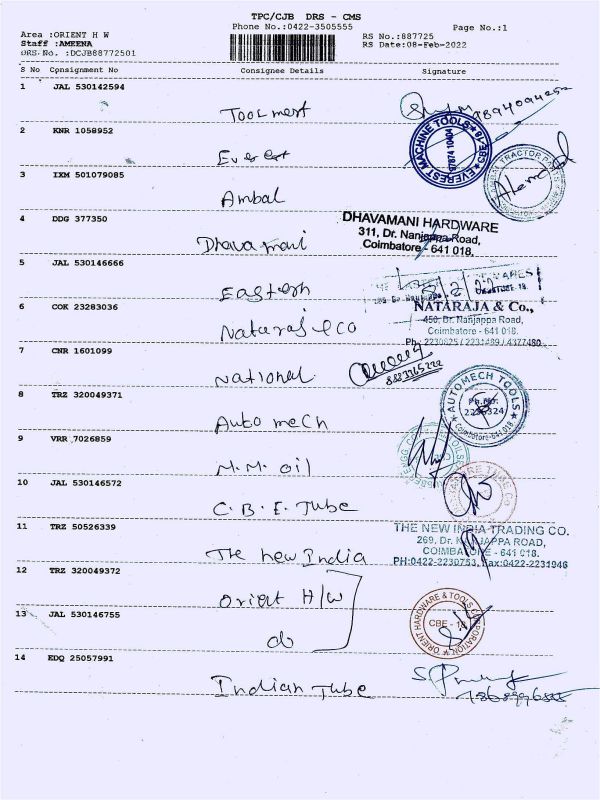 TPC/CJB DRS - CMS
Phone No.:0422-3505555
Page No.:1
Area :ORIENT H W
Staff :AMEENA
DRS No. :DCJB88772501
RS No.:887725
RS Date:08-Feb-2022
S No Cpnsignment No Consignee Details Signature
1 JAL 530142594 Toolmart
2 KNR 1058952 Everest
EVEREST MACHINE TOOLS
97874 10404
CBE-18
3 IXM 501079085 Ambal
TRACTOR PARTS
4 DDG 377350 Dhavamani
DHAVAMANI HARDWARE
311, Dr. Nanjappa Road,
Coimbatore - 641 018.
5 JAL 530146666 Eastern
6 COK 23283036 Nataraj & co
NATARAJA & Co.,
450, Dr. Nanjappa Road,
Coimbatore - 641 018.
Ph: 2230825 / 2231489 / 4377480
7 CNR 1601099 National
8 TRZ 320049371 Automech
AUTOMECH TOOLS
Ph.No:
Coimbatore-641 018
9 VRR 7026859 M.M. oil
10 JAL 530146572 C.B.E. Tube
11 TRZ 50526339 The new India
THE NEW INDIA TRADING CO.
269, Dr. NANJAPPA ROAD,
COIMBATORE - 641 018.
PH:0422-2230753, Fax:0422-2231946
12 TRZ 320049372 Orient H/W
13 JAL 530146755 do
ORIENT HARDWARE & TOOLS CORPORATION
CBE - 18
14 EDQ 25057991 Indian Tube